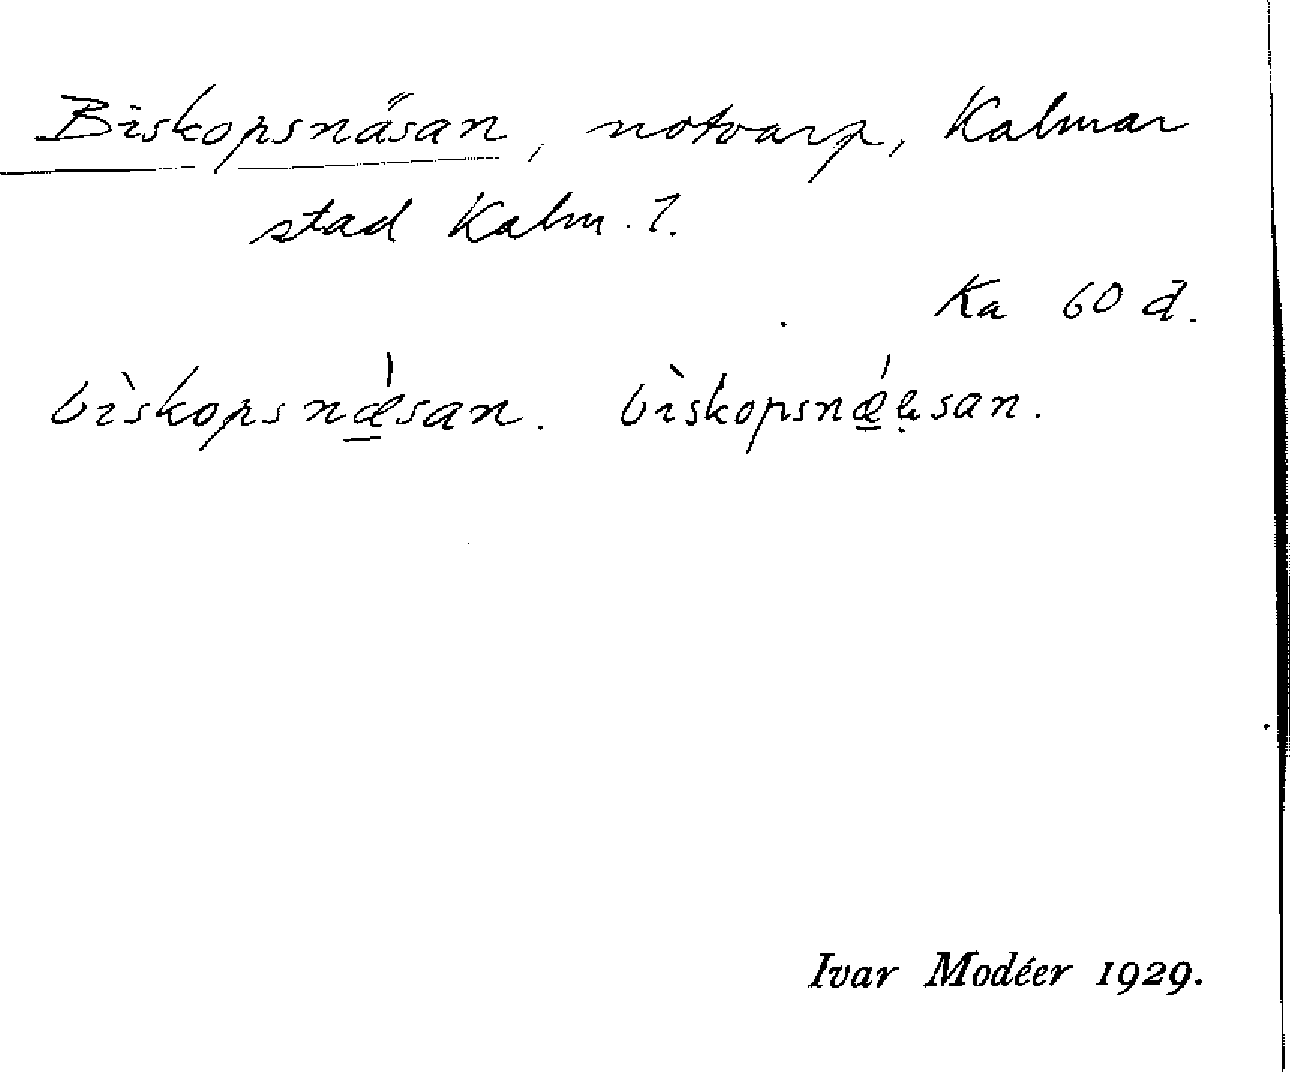 Biskopsnäsan, notvarp, Kalmar
stad Kalm. l.
Ka 60 d.
bìskopsnǽsan. bìskopsnǽęsan.
Ivar Modéer 1929.